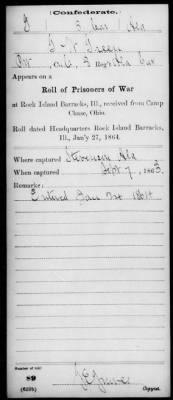 Confederate.
G 3 Cav Ala
J W Green
Pvt, Co. G, 3 Reg't Ala Cav
Appears on a
Roll of Prisoners of War
at Rock Island Barracks, Ill., received from Camp
Chase, Ohio.
Roll dated Headquarters Rock Island Barracks,
Ill., Jan'y 27, 1864.
Where captured Stevenson Ala
When captured Sept. 7, 1863.
Remarks:
Entered Jan 24 1864
Number of roll:
89
(639b)
Copyist.